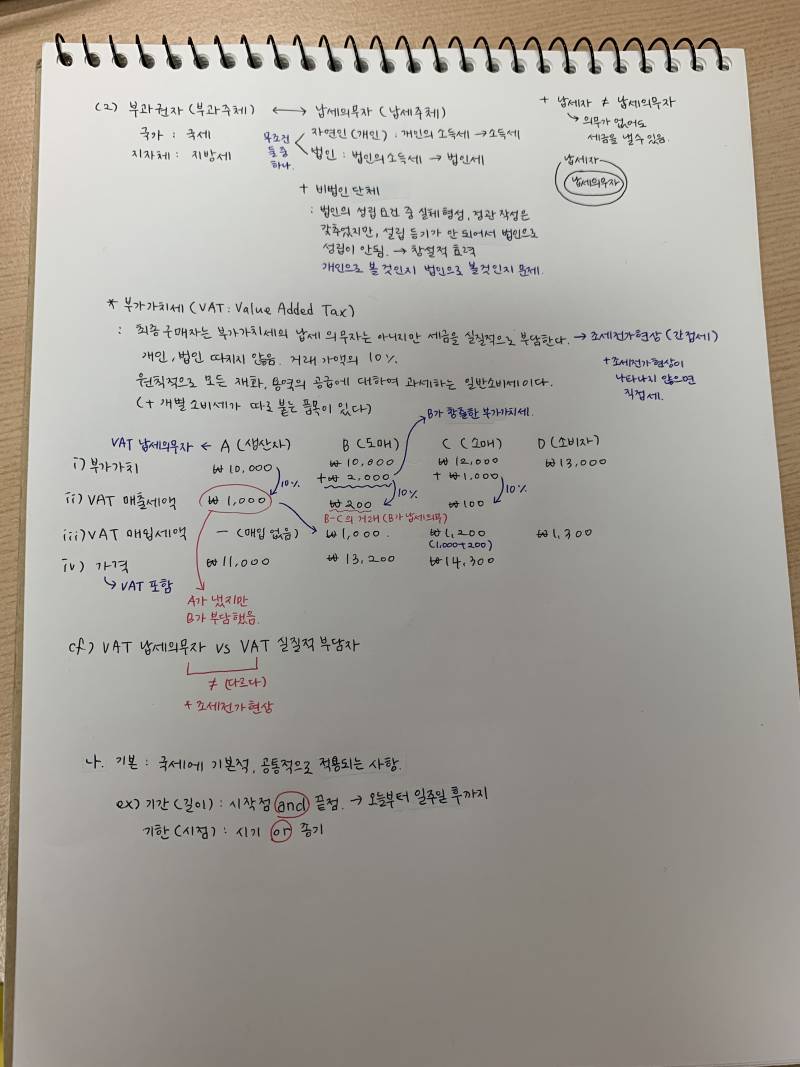 (2) 부과권자 (부과주체) ↔ 납세의무자 (납세주체)
국가 : 국세
지자체 : 지방세
무조건
둘 중
하나.
자연인 (개인) : 개인의 소득세 → 소득세
법인 : 법인의 소득세 → 법인세
+ 납세자 ≠ 납세의무자
↳ 의무가 없어도
세금을 낼 수 있음.
납세자
납세의무자
+ 비법인 단체
: 법인의 성립 요건 중 실체형성, 정관 작성은
갖추었지만, 설립 등기가 안 되어서 법인으로
성립이 안됨. → 창설적 효력
개인으로 볼것인지 법인으로 볼것인지 문제.
* 부가가치세 (VAT : Value Added Tax)
: 최종구매자는 부가가치세의 납세 의무자는 아니지만 세금을 실질적으로 부담한다. → 조세전가현상 (간접세)
개인, 법인 따지지 않음. 거래 가액의 10%.
원칙적으로 모든 재화, 용역의 공급에 대하여 과세하는 일반소비세이다.
(+ 개별 소비세가 따로 붙는 품목이 있다)
+ 조세전가현상이
나타나지 않으면
직접세.
B가 창출한 부가가치세.
VAT 납세의무자 ← A (생산자) B (도매) C (소매) D (소비자)
i) 부가가치 ₩10,000 ₩10,000 ₩12,000 ₩13,000
+₩2,000 + ₩1,000
10% 10% 10%
ii) VAT 매출세액 ₩1,000 ₩200 ₩100
B-C의 거래 (B가 납세의무)
iii) VAT 매입세액 — (매입 없음) ₩1,000. ₩1,200 ₩1,300
(1,000+200)
iv) 가격 ₩11,000 ₩13,200 ₩14,300
↳ VAT 포함
A가 냈지만
B가 부담했음.
cf) VAT 납세의무자 vs VAT 실질적 부담자
≠ (다르다)
+ 조세전가 현상
나. 기본 : 국세에 기본적, 공통적으로 적용되는 사항.
ex) 기간 (길이) : 시작점 and 끝점. → 오늘부터 일주일 후까지
기한 (시점) : 시기 or 종기